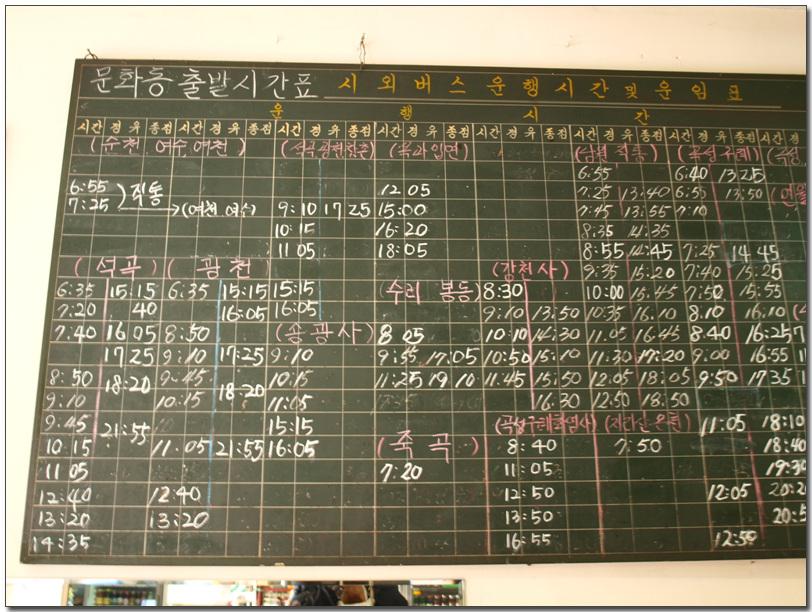 문화동 출발시간표 시외버스운행시간 및 운임표
운 행 시 간
시간 경유 종점 시간 경유 종점 시간 경유 종점 시간 경유 종점 시간 경유 종점 시간 경유 종점 시간 경유 종점 시간
(순천 여수 여천) (옥과 입면)
6:55 6:40 13:25
6:55 직통 12 05 7:25 13:40 6:50 13:50
7:25 (여천 여수) 9:10 17 25 15:00 7:45 13:55 7:10
10:15 16:20 8:35 14:35
11 05 18:05 8:55 14:45 7:25 14 45
(석곡) (광천) (강천사) 9:35 15:20 7:40 15:25
6:35 15:15 6:35 15:15 15:15 (수리 봉동) 8:30 10:00 15:45 7:50 15:55
7:20 40 16:05 16:05 9:10 13:50 10:35 16:10 8:10 16:10
7:40 16 05 8:50 (송광사) 8 05 10:10 14:30 11:05 16:45 8:40 16:25
17 25 9:10 17:25 9:10 9:55 17:05 10:50 15:10 11:30 17:20 9:00 16:55
8:50 18:20 9:45 18:20 10:15 11:25 19 10 11:45 15:50 12:05 18:05 9:50 17 35
9:10 10:15 11:05 16:30 12:50 18:50
9:45 21:55 15:15 11:05 18:10
10 15 11:05 21:55 16:05 (죽곡) 8:40 7:50 18:40
11 05 7:20 11:05 19:30
12:40 12:40 12:50 12:05
13:20 13:20 13:50
14:35 16:55 12:50